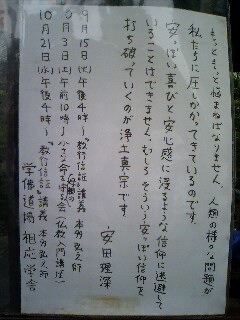 もっともっと悩まねばなりません。人類の様々な問題が
私たちに圧しかかってきているのです。
安っぽい喜びと安心感に浸るような信仰に逃避して
いることはできません。むしろそういう安っぽい信仰を
打ち破っていくのが浄土真宗です。
安田理深
9月15日(火)午後4時〜「教行信証」講義 本多弘之師
10月3日(土)午前10時〜 小さな命を守る会
仏教入門講座
10月21日(水)午後4時〜「教行信証」講義 本多弘之師
学佛道場 相応学舎